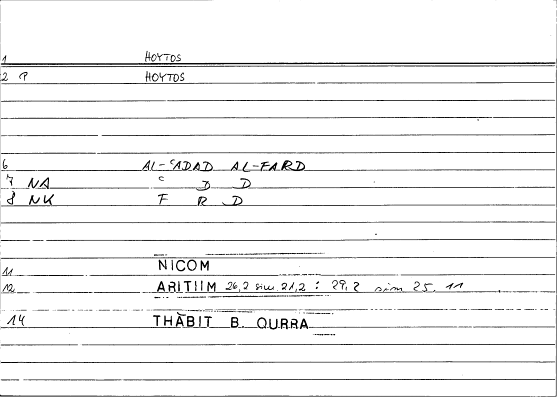 1 HOYTOS
2 P HOYTOS
6 AL-ʿADAD AL-FARD
7 NA ʿ D D
8 NK F R D
11 NICOM
12 ARITIIM 26,2 sim. 21,2 : 29,2 sim 25. 11
14 THĀBIT B. QURRA